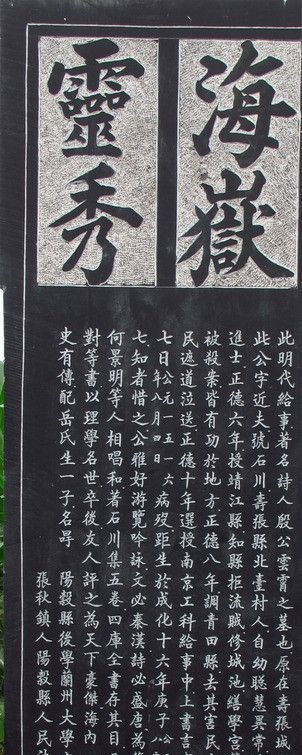 海嶽
靈秀
此明代給事著名詩人殷公雲霄之墓也原在壽張城
此公字近夫號石川壽張縣北臺村人自幼聰慧異常
進士正德六年授靖江縣知縣拒流賊修城池繕學宮
被殺案皆有功於地方正德八年調青田縣去其害民
民遮道泣送正德十年選授南京工科給事中上書言
七日公元一五一六年八月四日病歿距生於成化十六年庚子公
七知者惜之公雅好游覽吟詠文必秦漢詩必盛唐為
何景明等人相唱和著石川集五卷四庫全書存其目
對等書以理學名世卒後友人評之為天下豪傑海內
史有傳配岳氏生一子名㝷
陽穀縣後學蘭州大學
張秋鎮人陽穀縣人民